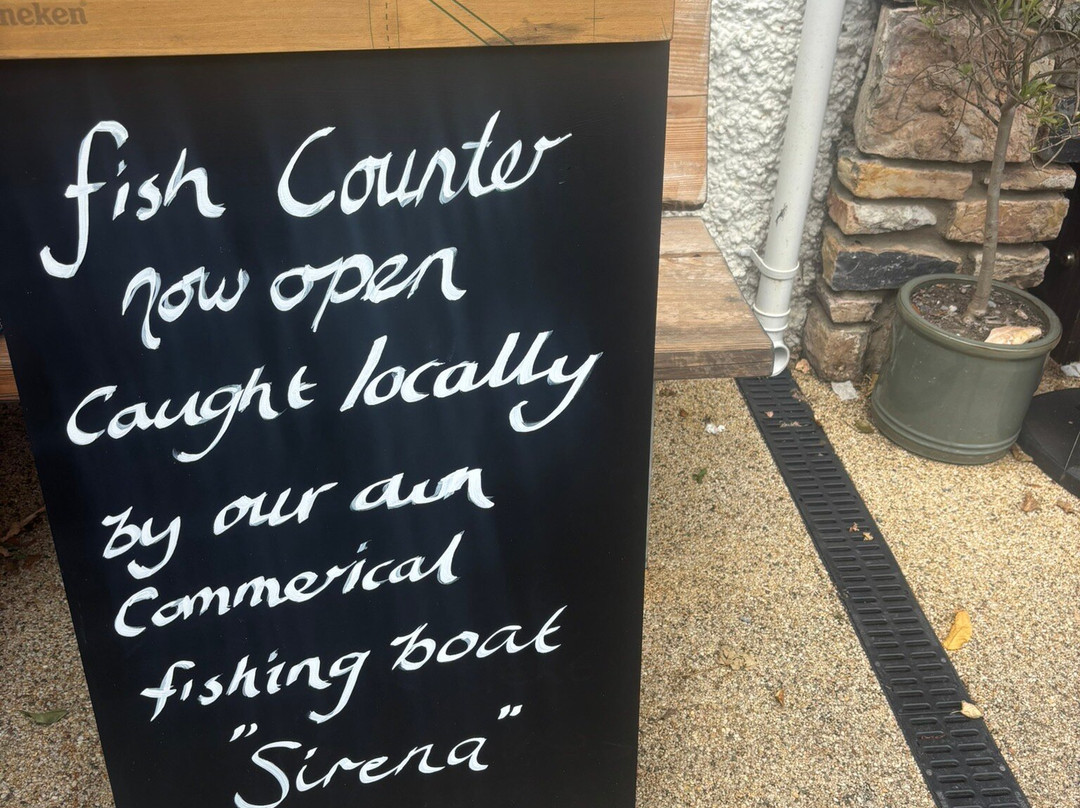 neken
fish Counter
now open
Caught locally
by our own
Commerical
fishing boat
"Sirena"